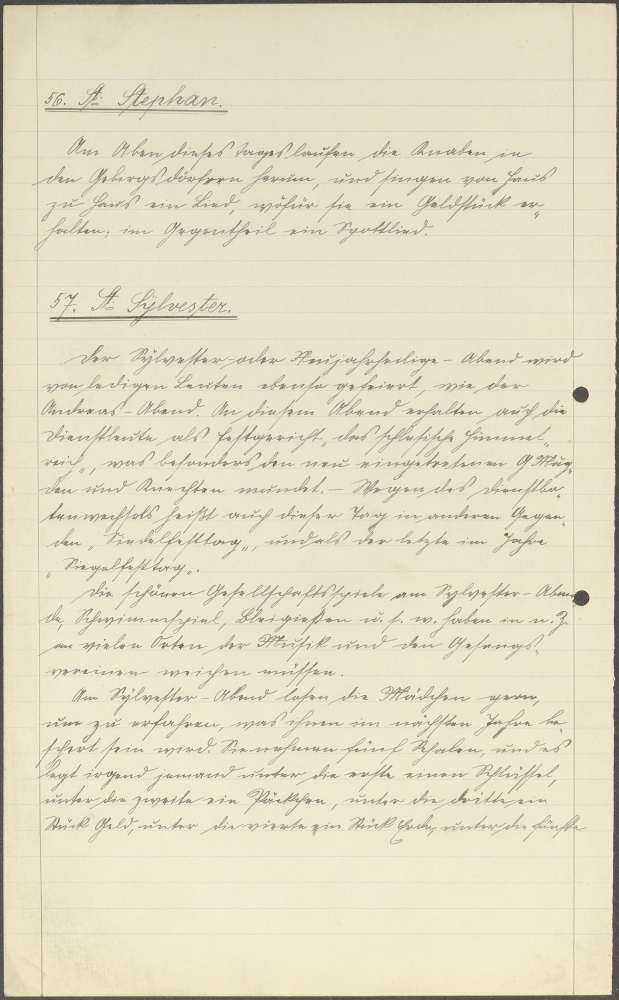 56. St. Stephan.
Am Aben dieses Tages laufen die Knaben in
den Gebirgsdörfern herum, und singen von Haus
zu Haus ein Lied, wofür sie ein Geldstück er-
halten; im Gegentheil ein Spottlied.
57. St. Sylvester.
Der Sylvester- oder Neujahrheilige-Abend wird
von ledigen Leuten ebenso gefeiert, wie der
Andreas-Abend. An diesem Abend erhalten auch die
Dienstleute als Festgericht „das schlesische Himmel-
reich", was besonders den neu eingetretenen Mäg-
den und Knechten mundet. – Wegen des Dienstbo-
tenwechsels heißt auch dieser Tag in anderen Gegen-
den „Siedelfesttag", und als der letzte im Jahre
„Siegelfesttag".
Die schönen Gesellschaftsspiele am Sylvester-Aben-
de, Schwimmspiel, Bleigießen u. s. w. haben in n. Z.
an vielen Orten der Musik und den Gesangs-
vereinen weichen müssen.
Am Sylvester-Abend losen die Mädchen gern,
um zu erfahren, was ihnen im nächsten Jahre be-
schert sein wird. Sie nehmen fünf Schalen, und es
legt irgend jemand unter die erste einen Schlüssel,
unter die zweite ein Päckchen, unter die dritte ein
Stück Geld, unter die vierte ein Stück Erde, unter die fünfte